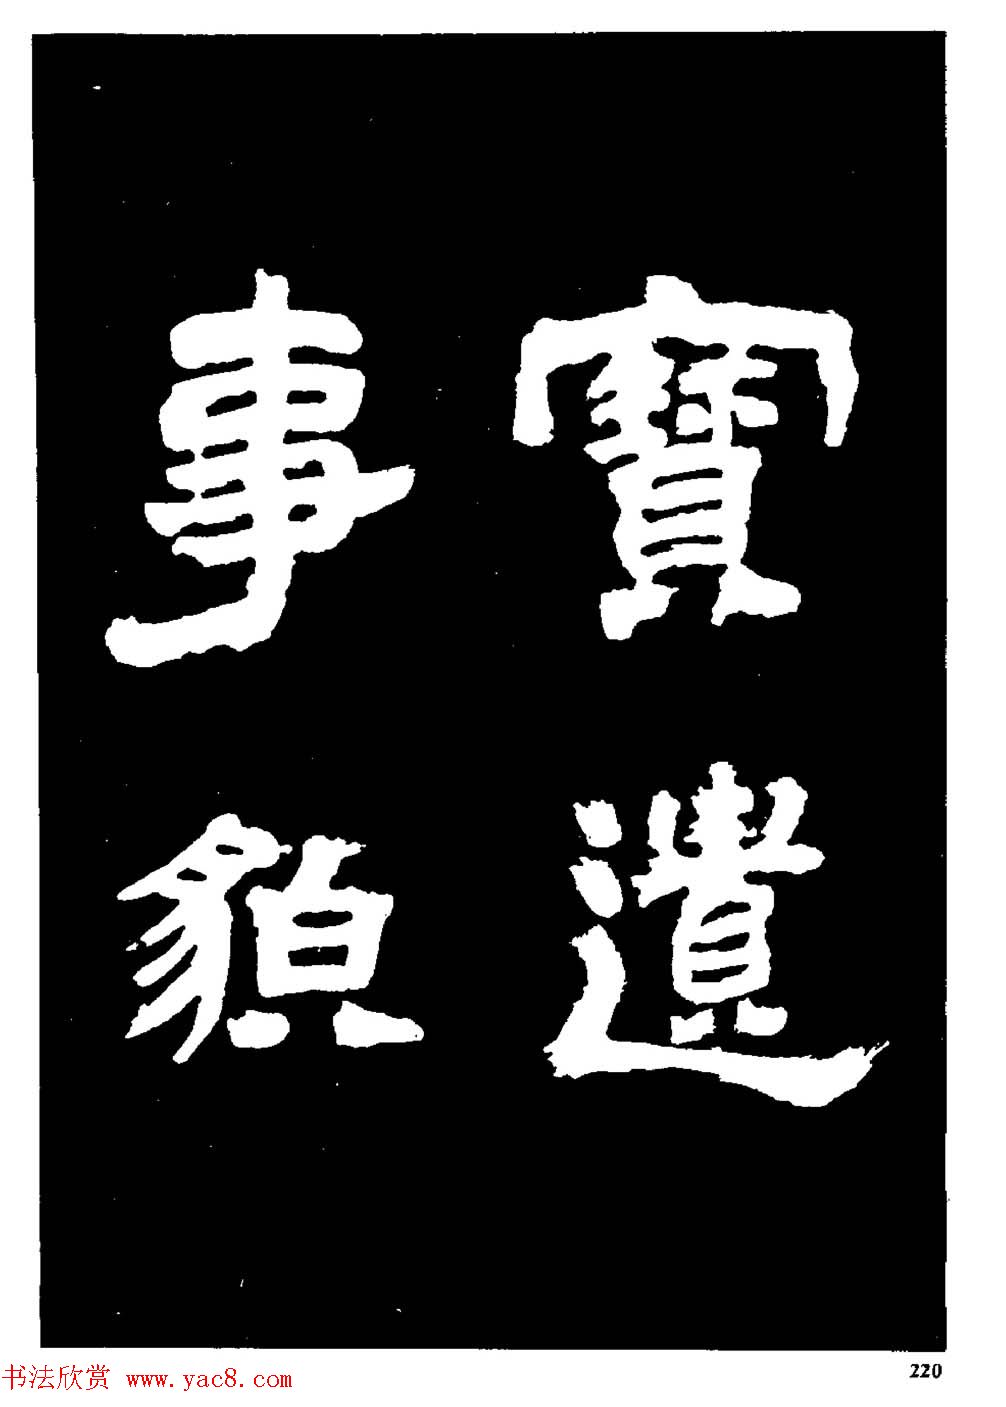 寶遺
事貌
220
书法欣赏 www.yac8.com